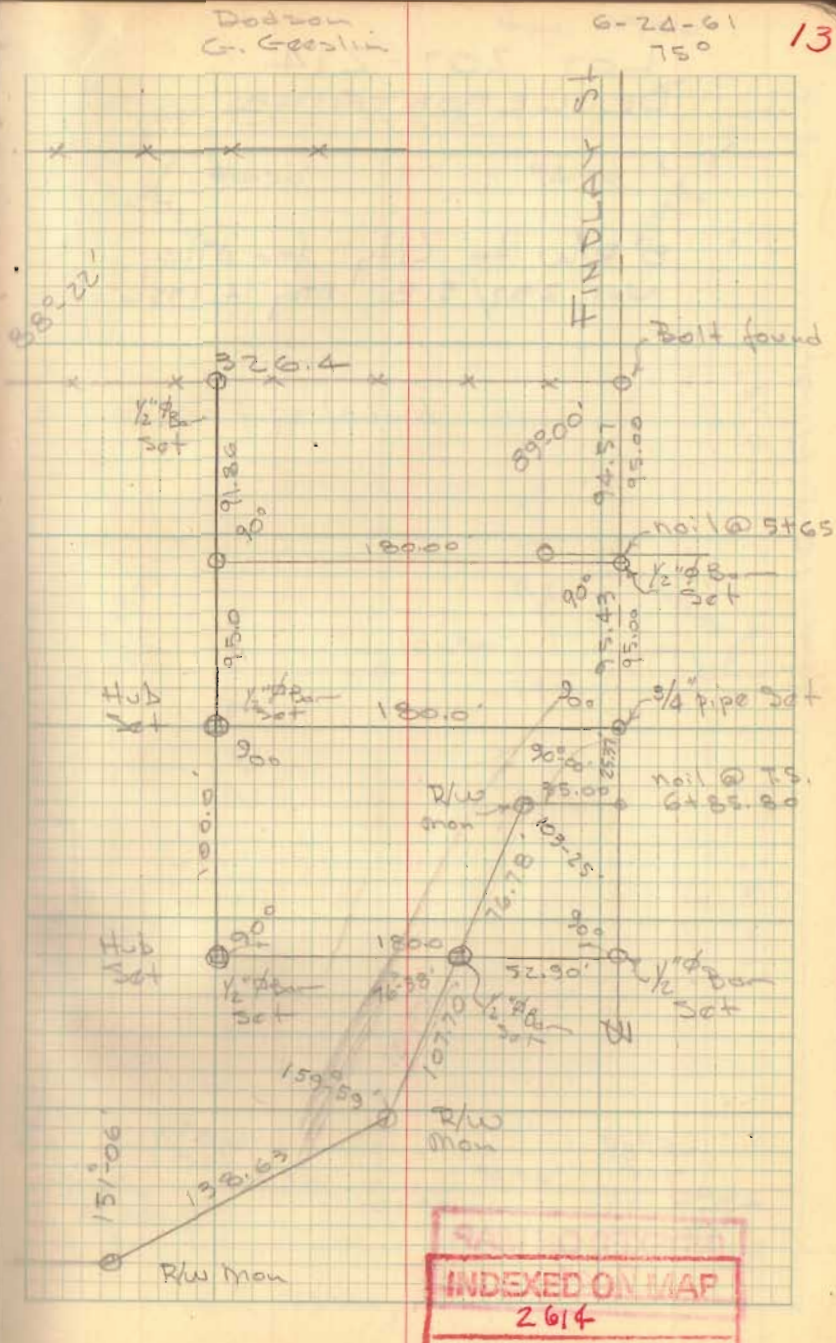 Dodson
G. Geeslin
6-24-61
75°
13
FINDLAY St
88°-22'
326.4
Bolt found
1/2"ϕ Bar
Set
89°-00'
94.57
95.00
91.86
90°
180.00
nail @ 5+65
1/2"ϕ Bar
Set
90°
95.43
95.00
95.0
Hub
Set
1/2"ϕ Bar
Set
180.0'
90°
3/4" pipe Set
90°
90°-00'
25.37'
R/W
mon
35.00
nail @ T.S.
6+85.80
103-25'
100.0'
76.78'
Hub
Set
90°
180.0
90°
1/2"ϕ Bar
Set
76°-38'
52.90'
1/2"ϕ Bar
Set
1/2"ϕ Bar
Set
107.70'
159°-59'
R/W
Mon
151°-06'
138.63
R/W Mon
INDEXED ON MAP
2614